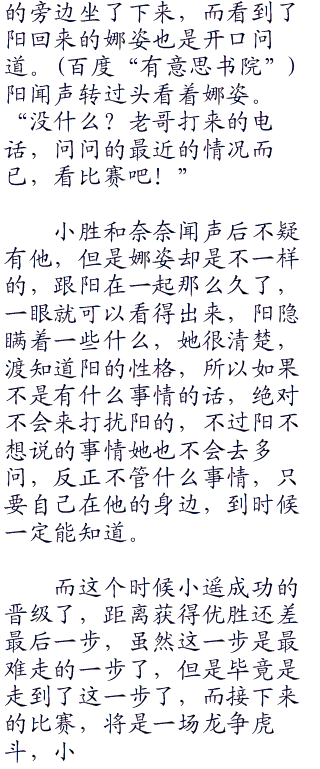 的旁边坐了下来，而看到了
阳回来的娜姿也是开口问
道。(百度“有意思书院”)
阳闻声转过头看着娜姿。
“没什么？老哥打来的电
话，问问的最近的情况而
已，看比赛吧！”
小胜和奈奈闻声后不疑
有他，但是娜姿却是不一样
的，跟阳在一起那么久了，
一眼就可以看得出来，阳隐
瞒着一些什么，她很清楚，
渡知道阳的性格，所以如果
不是有什么事情的话，绝对
不会来打扰阳的，不过阳不
想说的事情她也不会去多
问，反正不管什么事情，只
要自己在他的身边，到时候
一定能知道。
而这个时候小遥成功的
晋级了，距离获得优胜还差
最后一步，虽然这一步是最
难走的一步了，但是毕竟是
走到了这一步了，而接下来
的比赛，将是一场龙争虎
斗，小